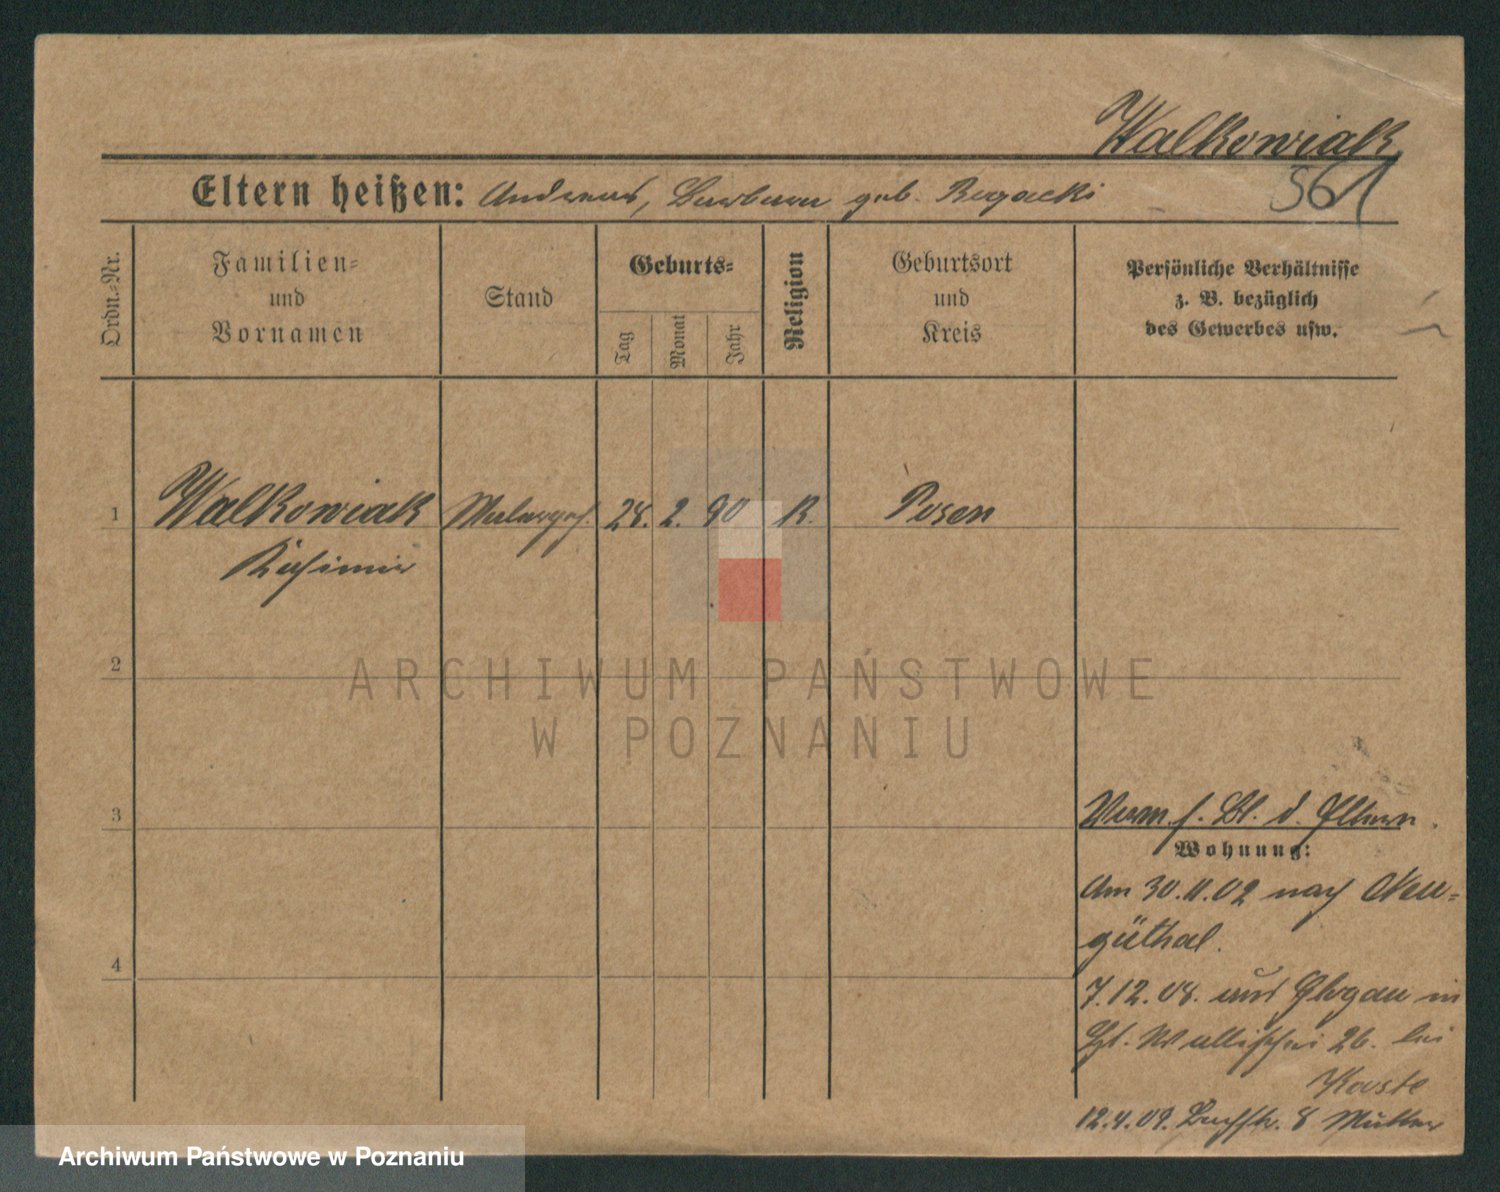 Walkowiak
561
Eltern heißen: Andreas, Barbara geb. Bogacki
Ordn.-Nr.
Familien-
und
Vornamen
Stand
Geburts-
Tag
Monat
Jahr
Religion
Geburtsort
und
Kreis
Persönliche Verhältnisse
z. B. bezüglich
des Gewerbes usw.
1
Walkowiak Malergeh. 28. 2. 90 K. Posen
Kasimir
2
ARCHIWUM PAŃSTWOWE
W POZNANIU
3
Verm. s. Bl. d. Eltern.
Wohnung:
Am 30.11.02 nach Neu-
güthal.
4
7.12.08. aus Glogau in
Wallischei 26. bei
12.4.09. 8 Mutter
Archiwum Państwowe w Poznaniu